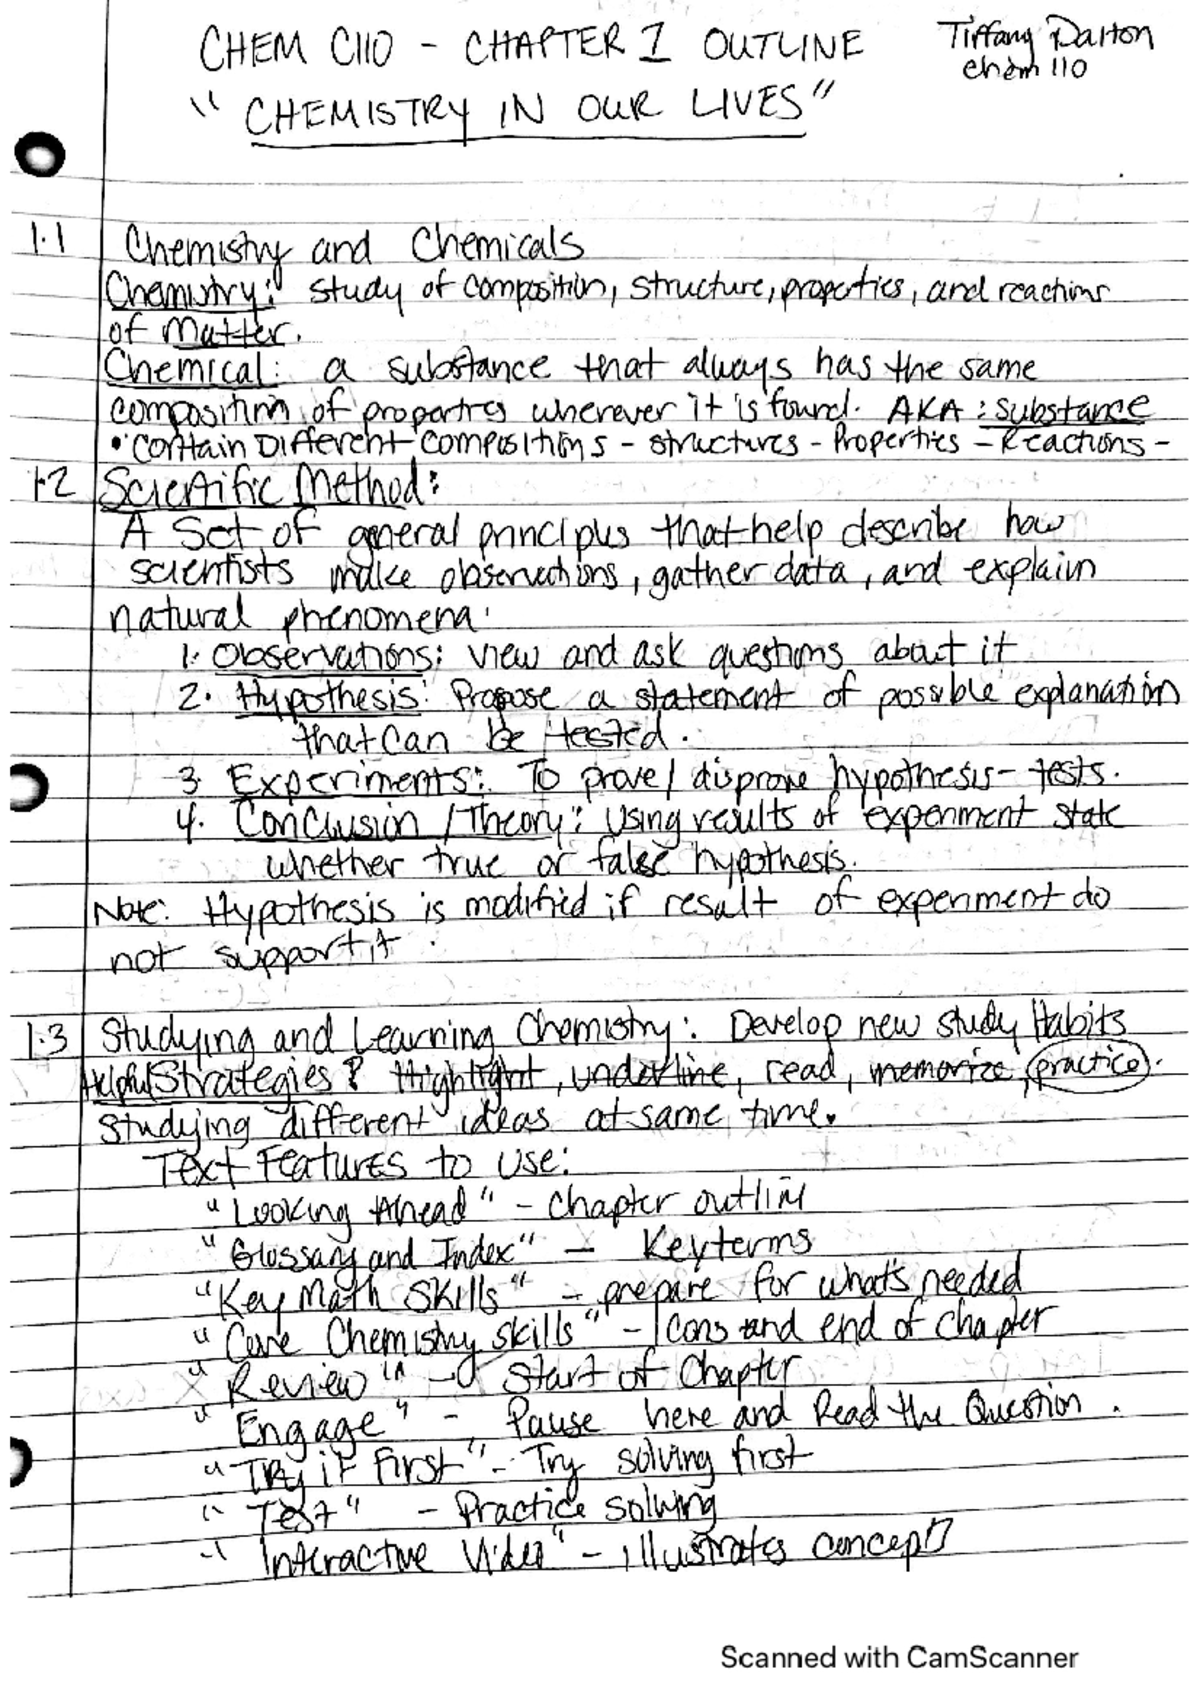 CHEM C110 - CHAPTER 1 OUTLINE
Tiffany Dalton
Chem 110
"CHEMISTRY IN OUR LIVES"
1.1 Chemistry and Chemicals
Chemistry: study of composition, structure, properties, and reactions
of Matter.
Chemical: a substance that always has the same
composition of properties wherever it is found. AKA: substance
• contain Different compositions - structures - Properties - Reactions -
1.2 Scientific Method:
A Set of general principles that help describe how
scientists make observations, gather data, and explain
natural phenomena.
1. Observations: view and ask questions about it
2. Hypothesis: Propose a statement of possible explanation
that can be tested.
3. Experiments: To prove/disprove hypothesis - tests.
4. Conclusion/Theory: Using results of experiment state
whether true or false hypothesis.
Note: Hypothesis is modified if result of experiment do
not support it.
1.3 Studying and Learning Chemistry: Develop new study Habits
Helpful Strategies? Highlight, underline, read, memorize, practice.
Studying different ideas at same time.
Text Features to Use:
"Looking Ahead" - Chapter outline
"Glossary and Index" - Key terms
"Key Math Skills" - prepare for what's needed
"Core Chemistry skills" - Icons and end of chapter
"Review" - Start of Chapter
"Engage" - Pause here and Read the Question.
"TRy iT First" - Try solving first
"Test" - Practice solving
"Interactive Video" - illustrates concept
Scanned with CamScanner